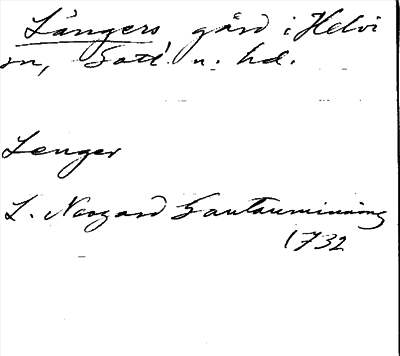 Långers, gård i Helvi
sn, Gotl. n. hd.
Lenger
L. Neogard Gautauminning
1732